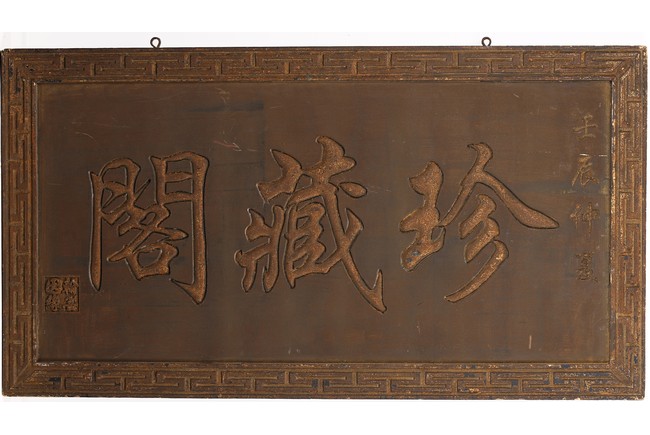 壬辰仲夏
珍藏閣